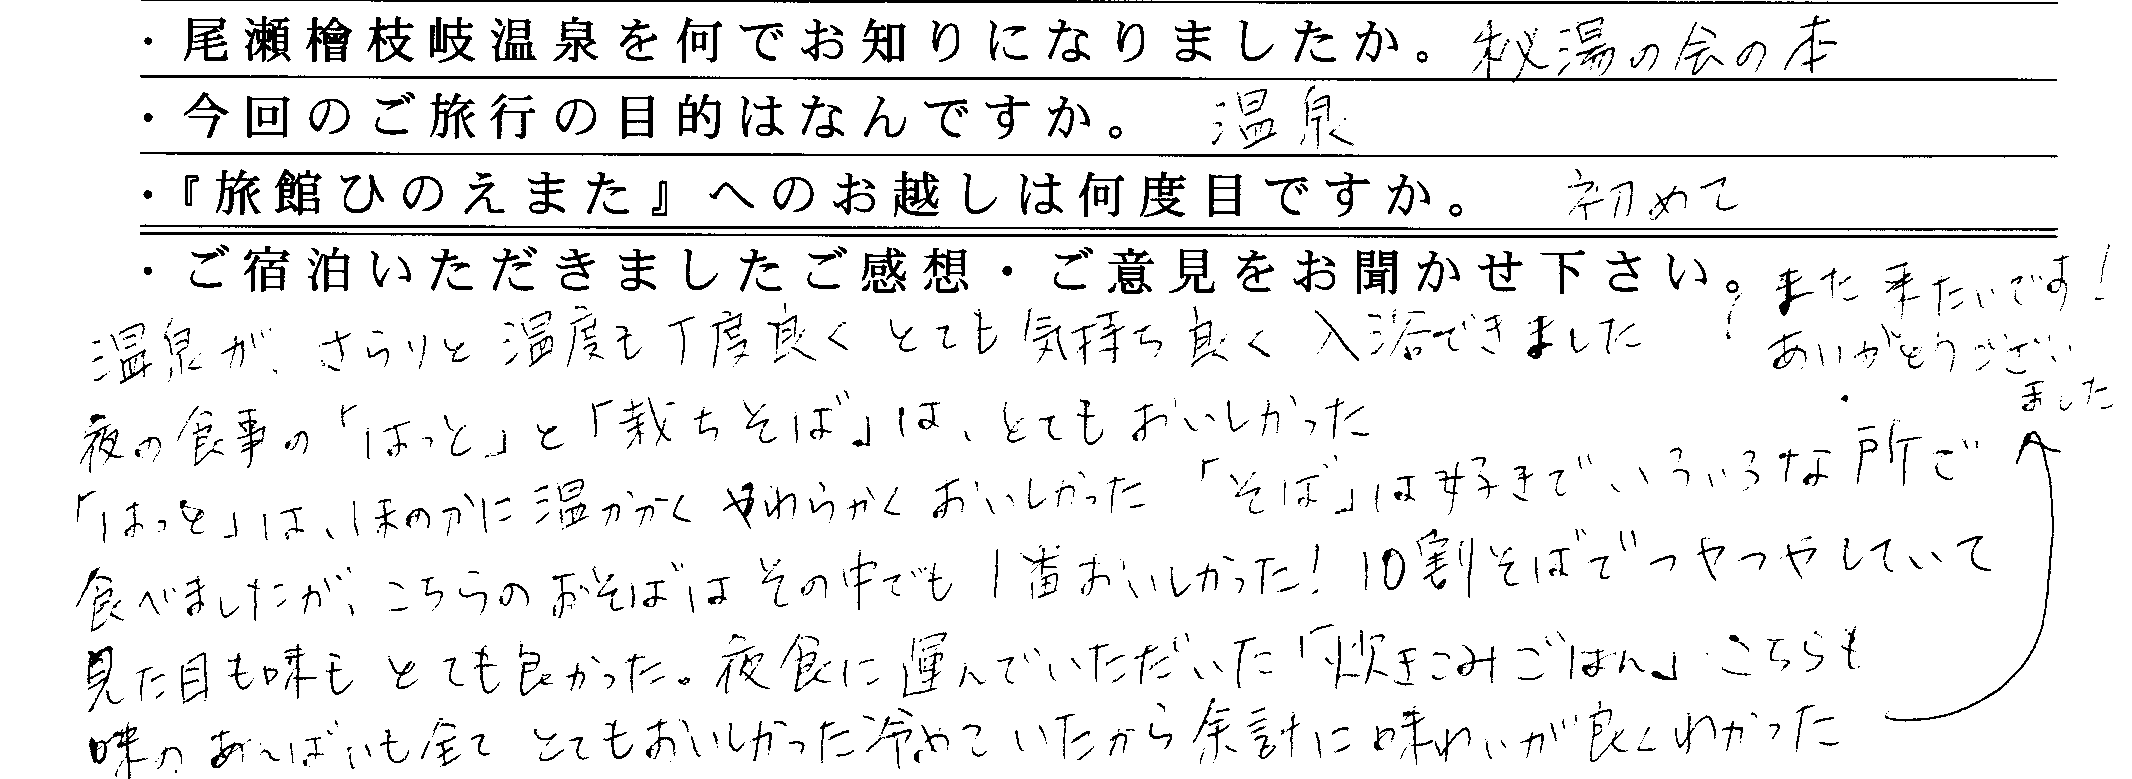 ・尾瀬檜枝岐温泉を何でお知りになりましたか。 秘湯の会の本
・今回のご旅行の目的はなんですか。 温泉
・『旅館ひのえまた』へのお越しは何度目ですか。 初めて
・ご宿泊いただきましたご感想・ご意見をお聞かせ下さい。
温泉が、さらりと温度も丁度良くとても気持ち良く入浴できました
夜の食事の「はっと」と「裁ちそば」は、とてもおいしかった
「はっと」は、ほのかに温かかくやわらかくおいしかった「そば」は好きでいろいろな所で
食べましたが、こちらのおそばはその中でも1番おいしかった!10割そばでつやつやしていて
見た目も味もとても良かった。夜食に運んでいただいた「炊きこみごはん」こちらも
味のあんばいも全てとてもおいしかった冷めていたから余計に味わいが良くわかった
また来たいです!
ありがとうござい
ました